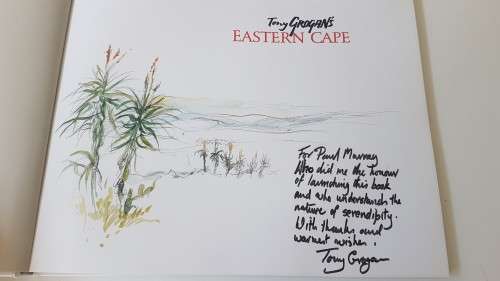 Tony GROGAN'S
EASTERN CAPE
For Paul Murray
who did me the honour
of launching this book
and who understands the
nature of serendipity.
With thanks and
warmest wishes.
Tony Grogan